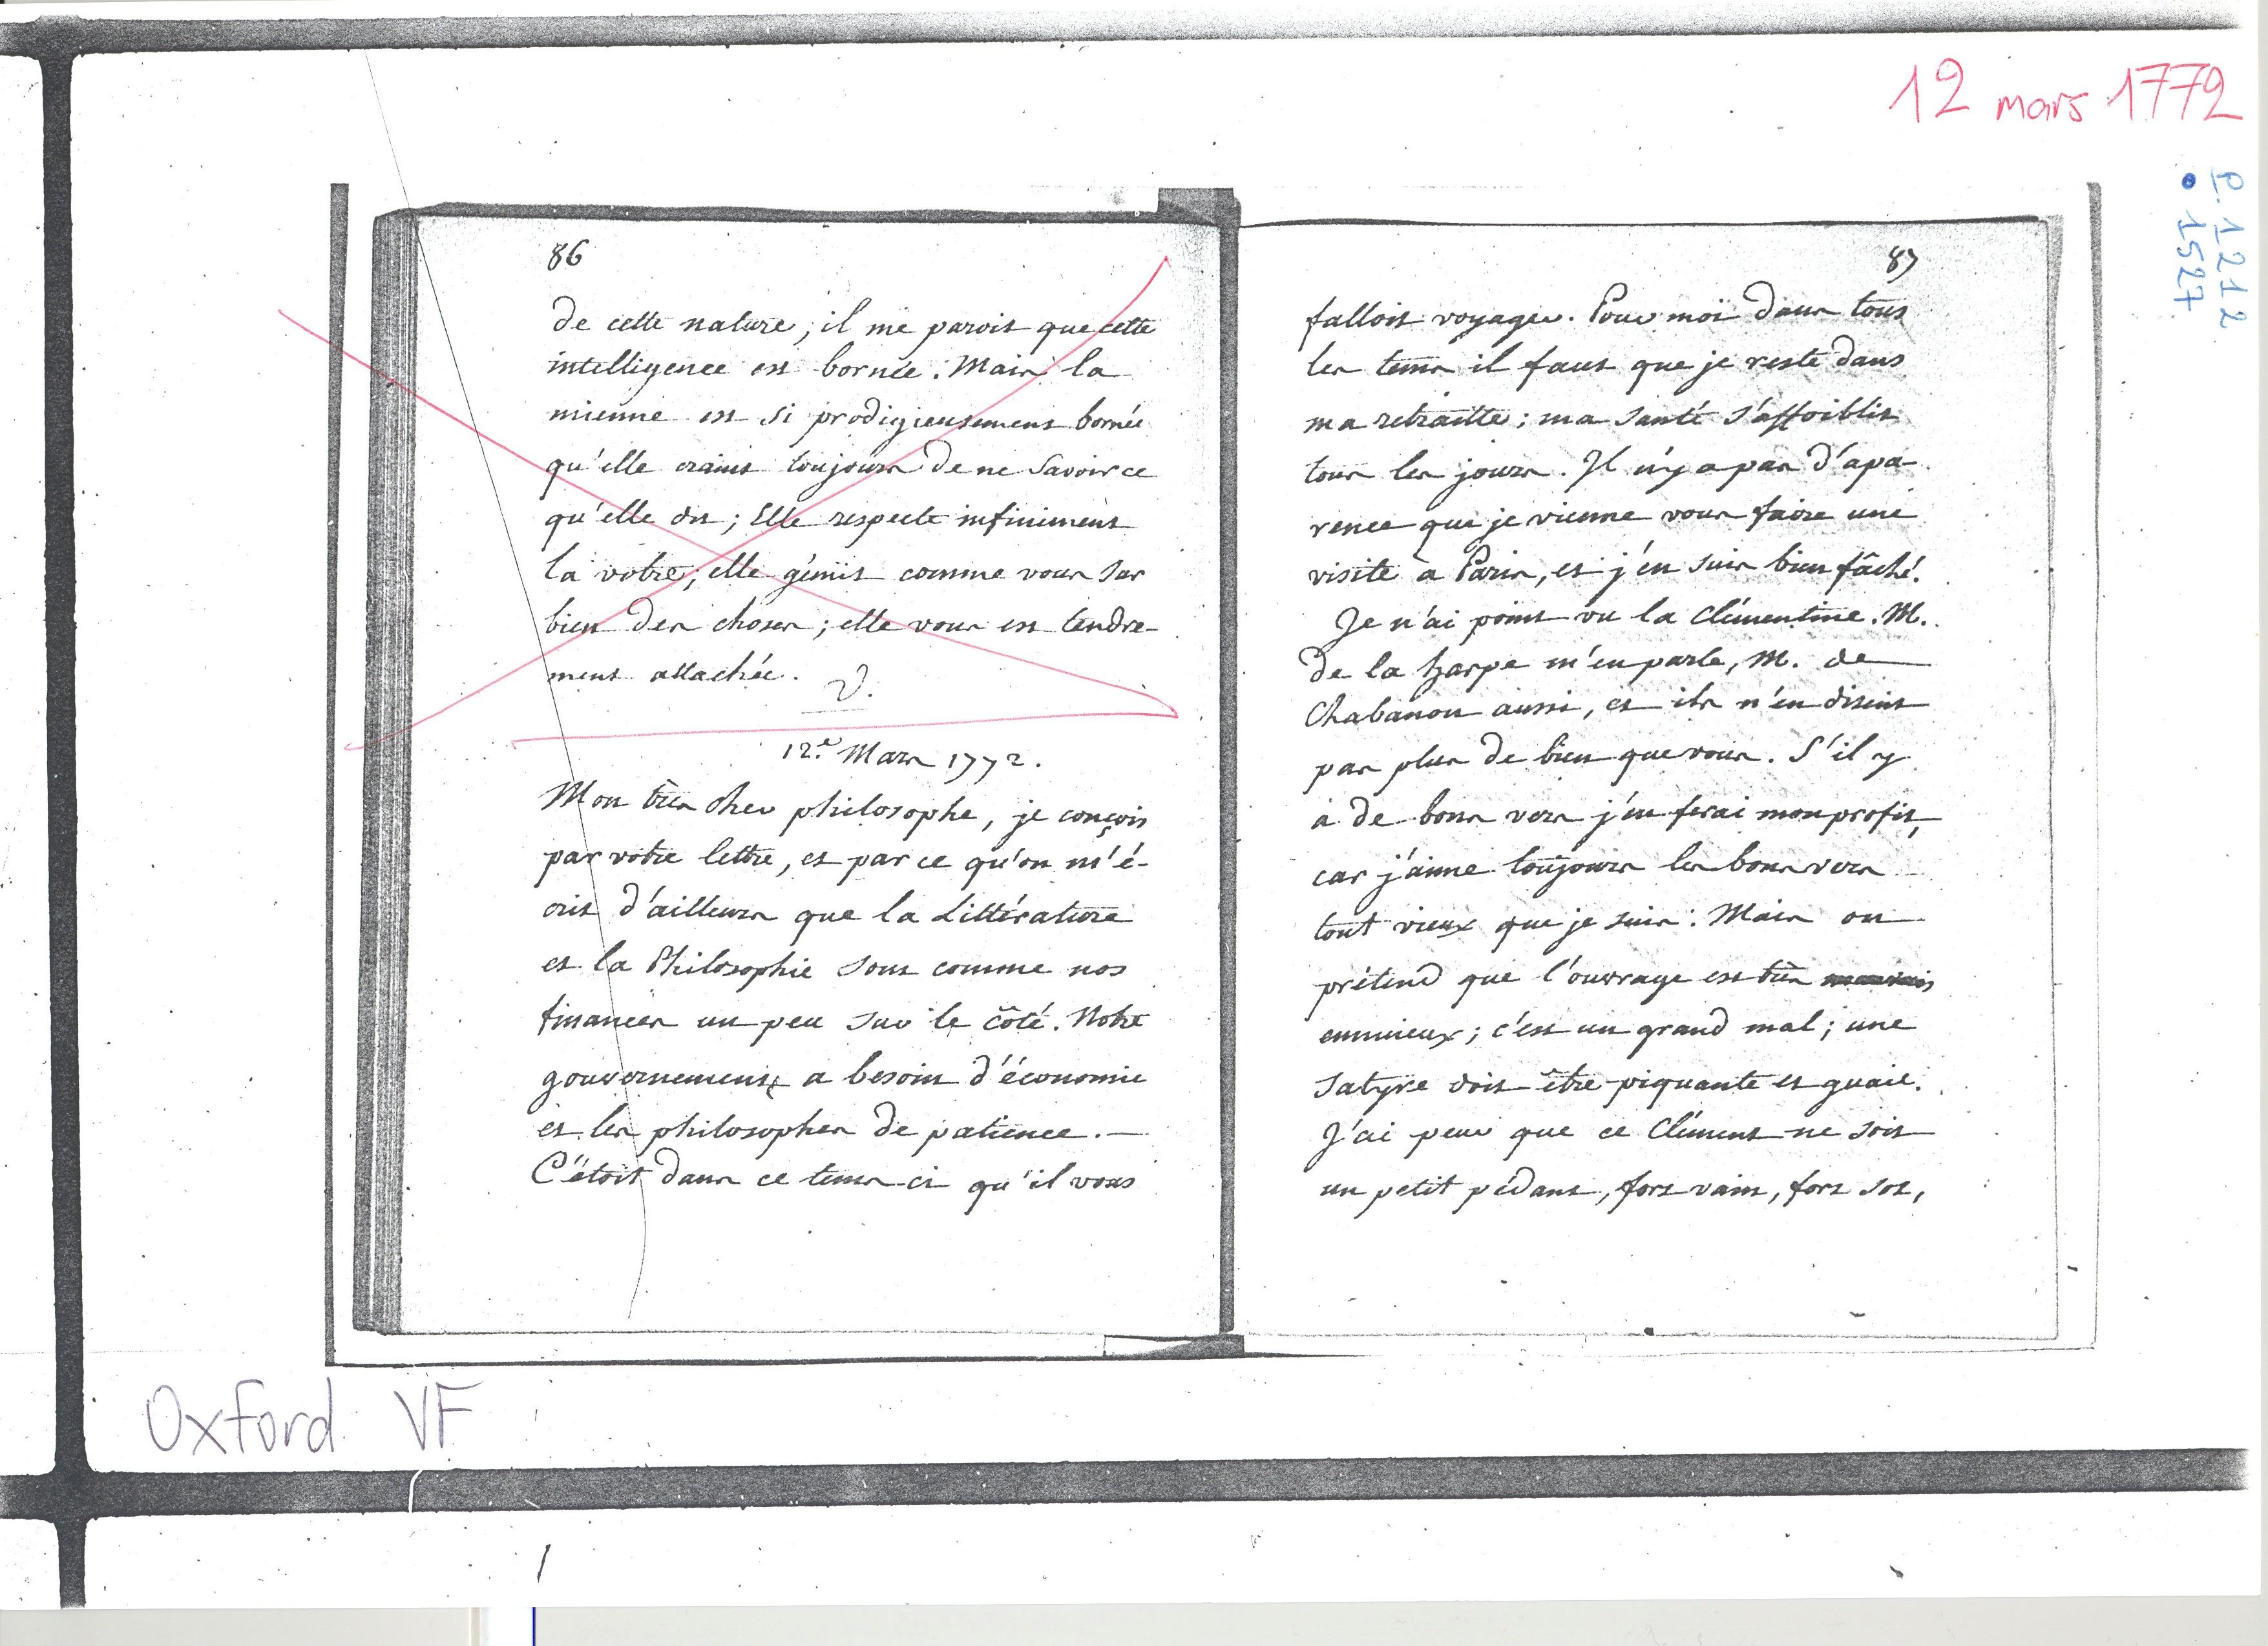 12 mars 1772
P. 1212
• 1527
86
de cette nature, il me paroit que cette
intelligence est bornée. Mais la
mienne est si prodigieusement bornée
qu'elle craint toujours de ne savoir ce
qu'elle dit ; Elle respecte infiniment
la votre, elle gémit comme vous sur
bien des choses ; elle vous est tendre-
ment attachée.
V.
12.e Mars 1772.
Mon très cher philosophe, je conçois
par votre lettre, et par ce qu'on m'é-
crit d'ailleurs que la Littérature
et la Philosophie sont comme nos
finances un peu sur le côté. Notre
gouvernement a besoin d'économie
et les philosophes de patience. —
C'étoit dans ce tems-ci qu'il vous
87
falloit voyager. Pour moi dans tous
les tems il faut que je reste dans
ma retraitte ; ma santé s'affoiblit
tous les jours. Il n'y a pas d'apa-
rence que je vienne vous faire une
visite à Paris, et j'en suis bien fâché.
Je n'ai point vu la Clémentine. M.
de la harpe m'en parle, M. de
Chabanon aussi, et ils n'en disent
pas plus de bien que vous. S'il y
a de bons vers j'en ferai mon profit,
car j'aime toujours les bons vers
tout vieux que je suis : Mais on
prétend que l'ouvrage est très mauvais
ennuieux ; c'est un grand mal ; une
satyre doit être piquante et guaie.
J'ai peur que ce Clément ne soit
un petit pédant, fort vain, fort sot,
Oxford VF